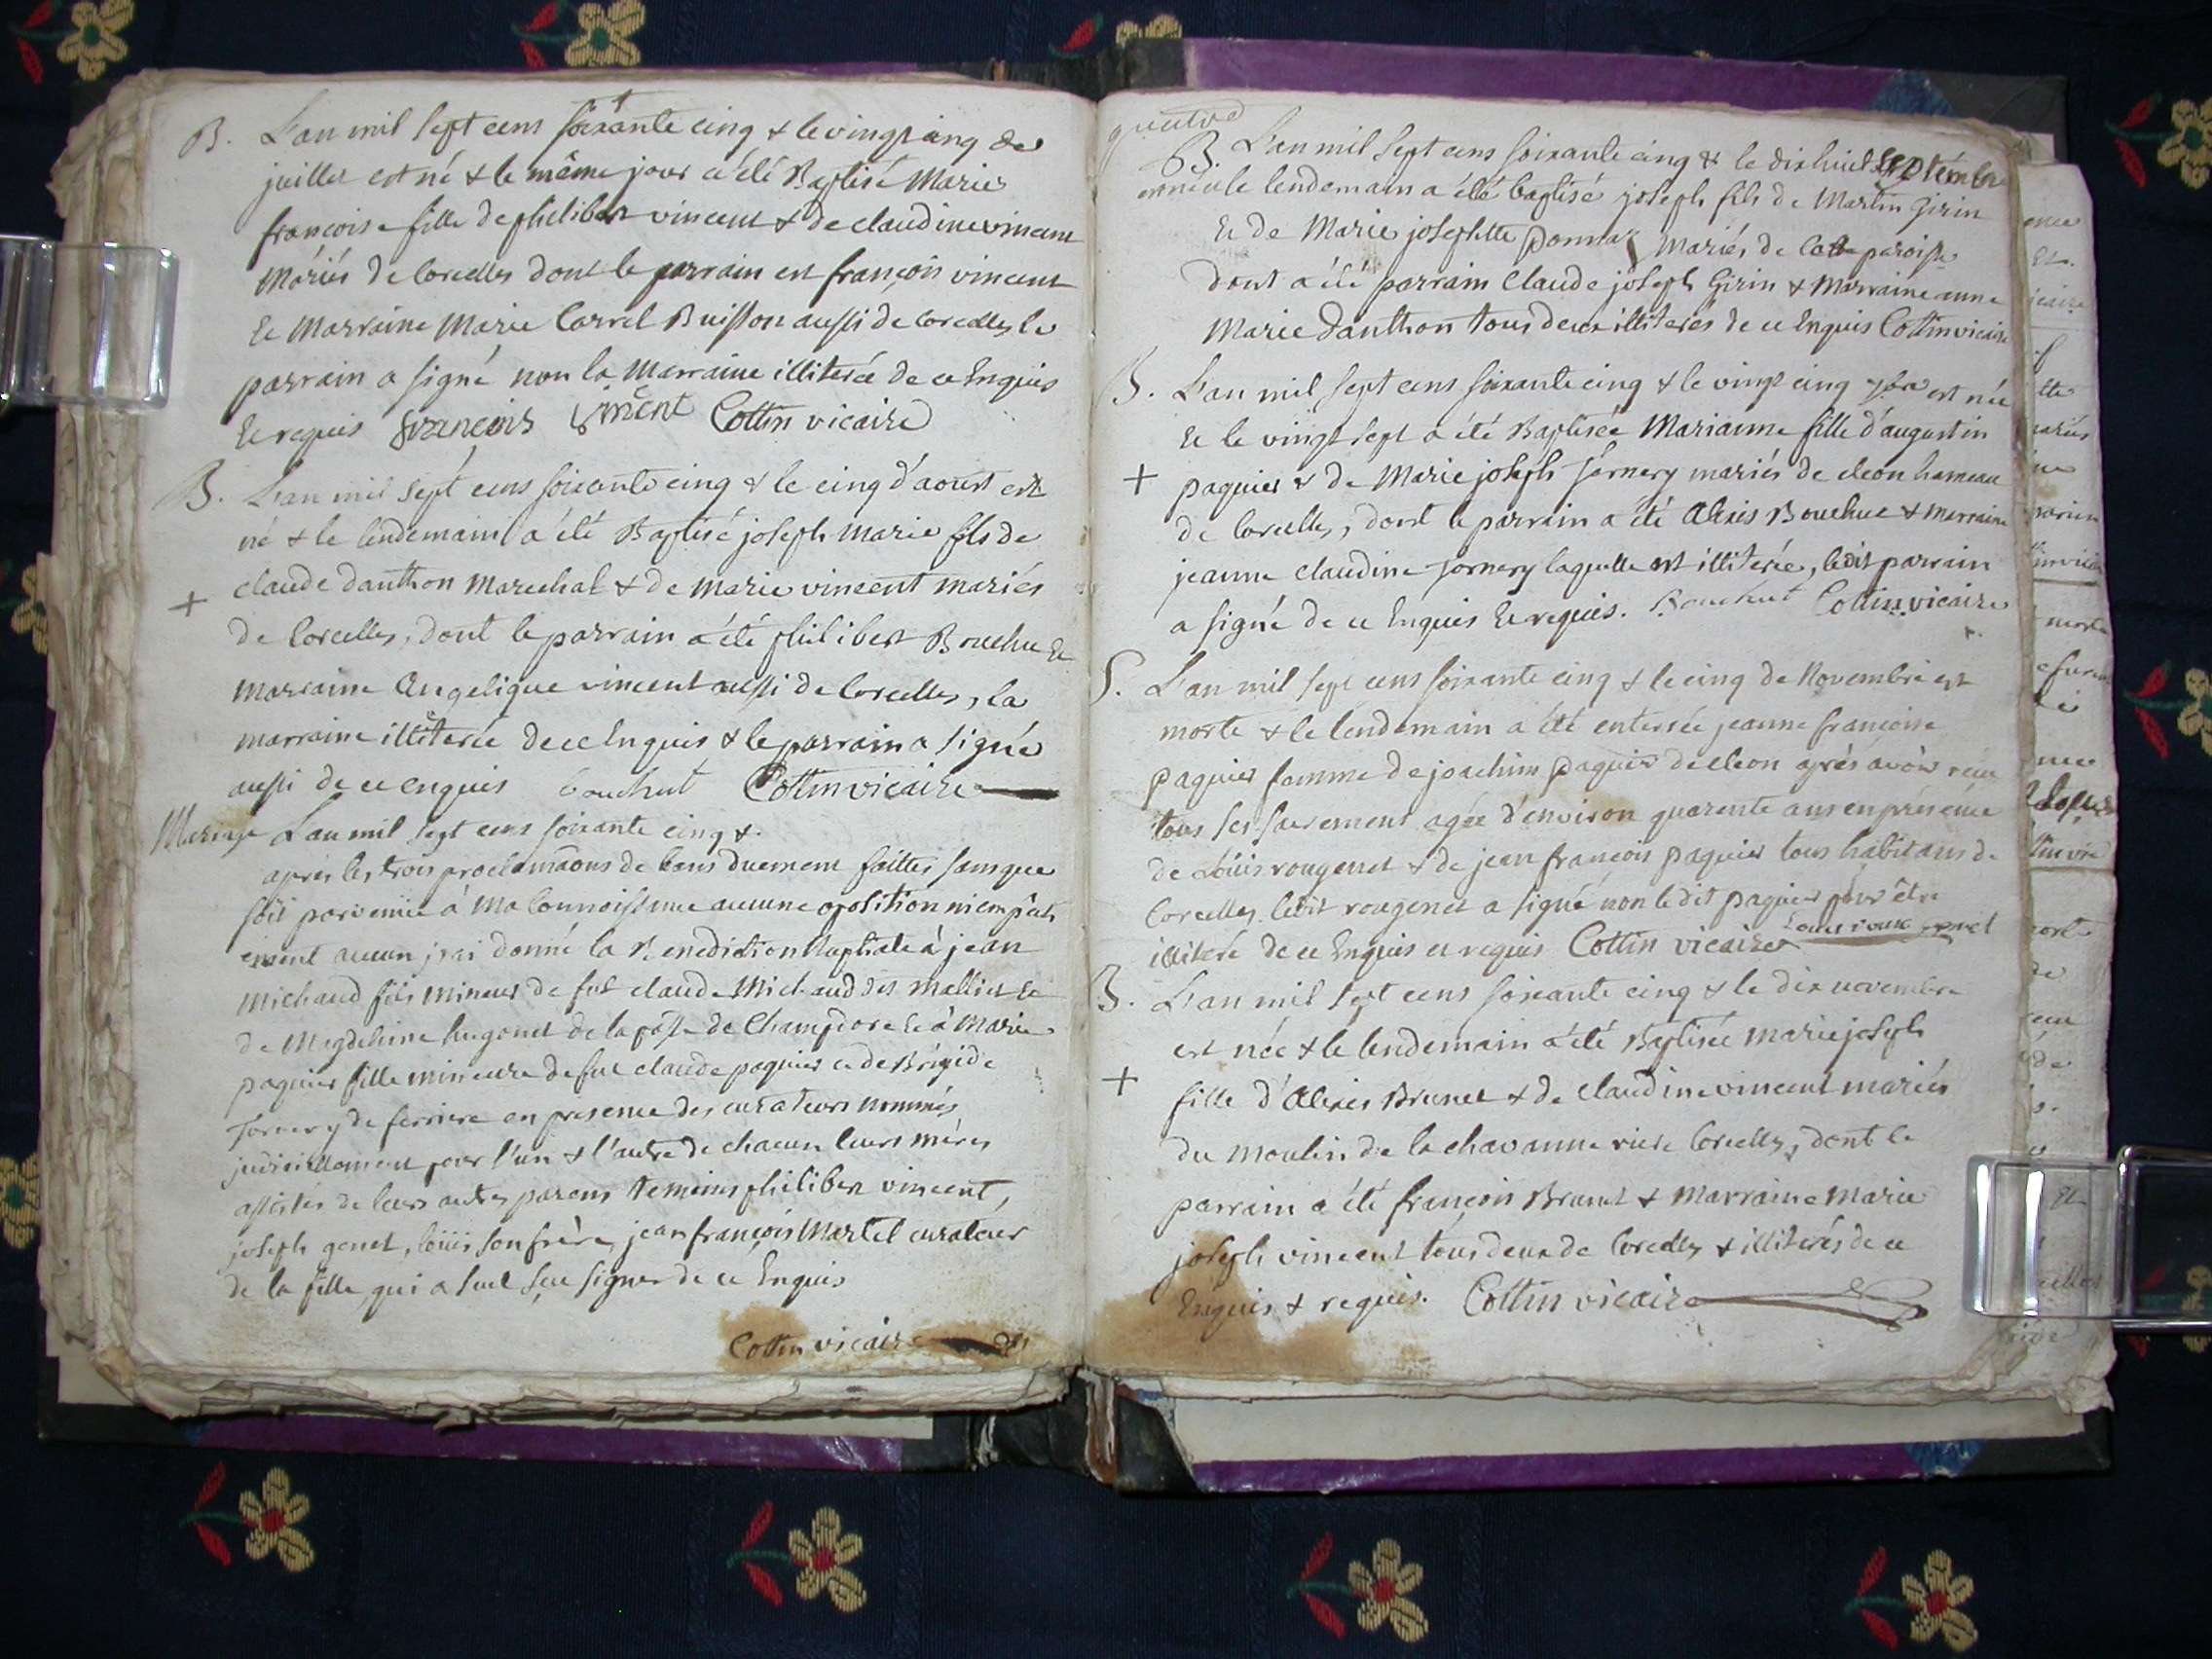 B. L'an mil sept cens soixante cinq & le vingt cinq de
juillet est né & le même jour a été Baptisé Marie
francoise fille de philibert vincent & de claudine vincent
Mariés de Corcelles dont le parrain est françois vincent
Et Marraine Marie Carrel Buisson aussi de Corcelles le
parrain a signé non la Marraine illiterée de ce Enquis
Et requis francois vincent Cottin vicaire
B. L'an mil sept cens soixante cinq & le cinq d'aoust est
né & le lendemain a été Baptisé joseph Marie fils de
+ claude danthon Marechal & de Marie vincent mariés
de Corcelles, dont le parrain a été philibert Bouchu Et
Marraine Angelique vincent aussi de Corcelles, la
marraine illiterée de ce Enquis & le parrain a signé
aussi de ce enquis bouchut Cottin vicaire
Mariage L'an mil sept cens soixante cinq &.
après les trois proclamaons de bans duement faittes sans que
soit parvenue à Ma Connoissance aucune oposition ni empêch
ement aucun j'ai donné la Benediction Nuptiale à jean
michaud fils mineur de fut claude Michaud des Mallies Et
de Magdeleine hugonet de la pôsse de Champdore Et à Marie
paquier fille mineure de fut claude paquier et de Brigide
Jornery de ferriere en presence des curateurs nommés
judiciellement pour l'un & l'autre de chacun leurs mères
assistés de leurs autres parens temoins philibert vincent,
joseph genet, loüis son frère, jean françois Martel curateur
de la fille, qui a seul sçu signer de ce Enquis
Cottin vicaire
quatre
B. L'an mil Sept cens soixante cinq & le dix huit Septembre
est né & le lendemain a été baptisé joseph fils de Martin Girin
Et de Marie josephtte ponnaz Mariés de Cette paroisse
dont a été parrain Claude joseph Girin & Marraine anne
Marie danthon tous deux illiterés de ce Enquis Cottin vicaire
B. L'an mil sept cens soixante cinq & le vingt cinq 7bre est née
Et le vingt sept a été Baptisée Marianne fille d'augustin
+ paquier & de Marie joseph Jornery mariés de cleon hameau
de Corcelles, dont le parrain a été Alexis Bouchut & marraine
jeanne claudine Jornery laquelle est illiterée, ledit parrain
a signé de ce Enquis Et requis. Bouchut Cottin vicaire
S. L'an mil sept cens soixante cinq & le cinq de Novembre est
morte & le lendemain a été enterrée jeanne françoise
paquier femme de joachim paquier de cleon après avoir reçu
tous ses sacremens agée d'environ quarente ans en présence
de Loüis rougenet & de jean françois paquier tous habitans de
Corcelles ledit rougenet a signé non ledit paquier pour être
illiteré de ce Enquis et requis Cottin vicaire Louis rougenet
B. L'an mil sept cens soixante cinq & le dix novembre
est née & le lendemain a été Baptisée Marie joseph
+ fille d'Alexis Brunet & de Claudine vincent mariés
du Moulin de la chavanne riere Corcelles, dont le
parrain a été françois Brunet & Marraine Marie
joseph vincent tous deux de Corcelles & illiterés de ce
Enquis & requis. Cottin vicaire